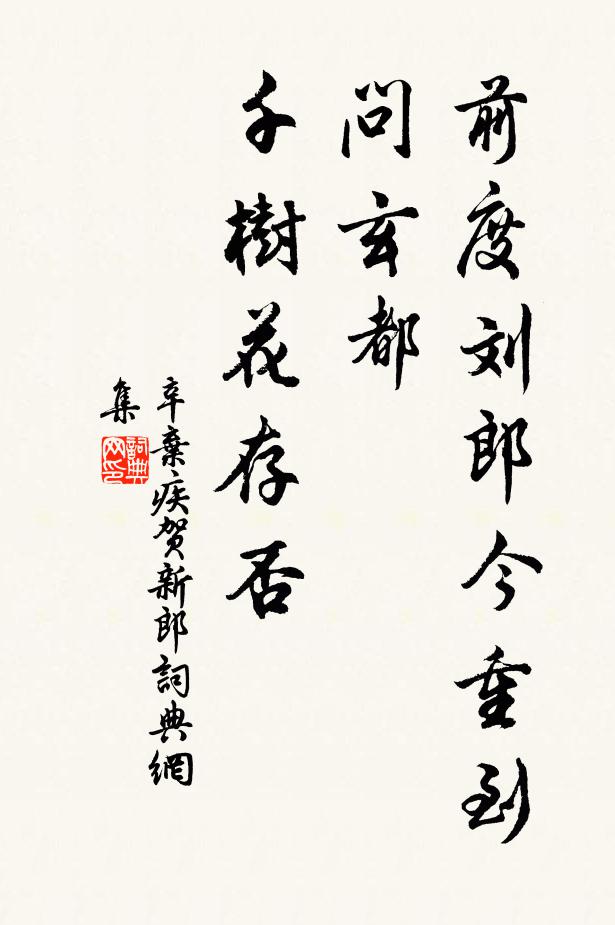 前度刘郎今重到
問玄都
千樹花存否
辛棄疾賀新郎詞典網
集
詞典
网印